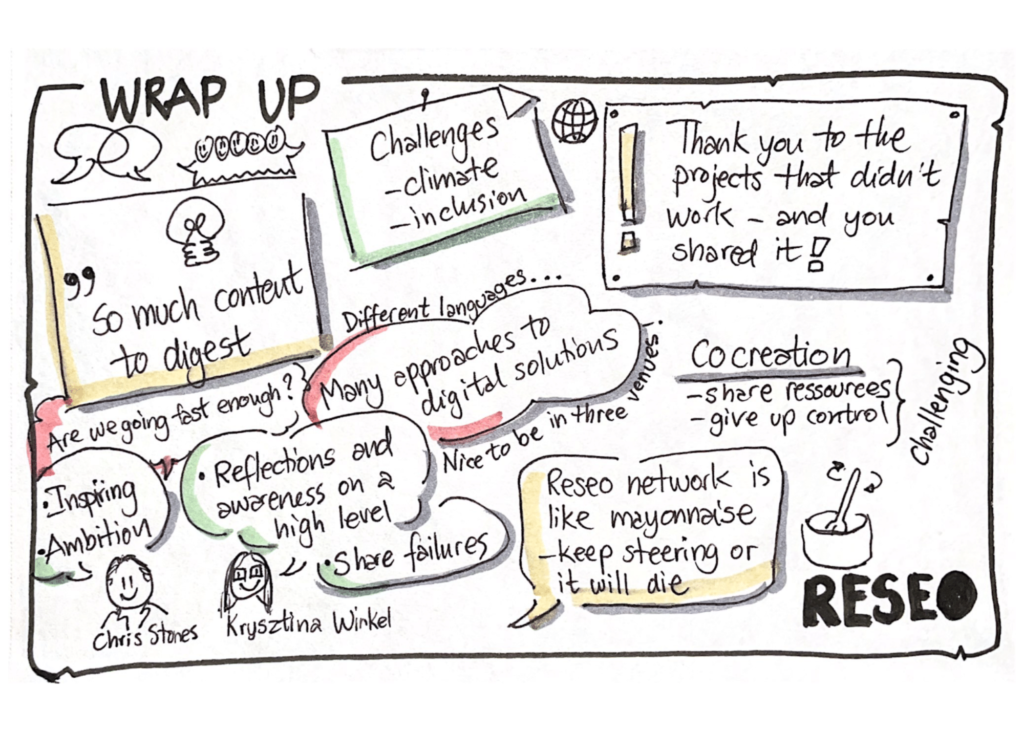 WRAP UP
Challenges
-climate
-inclusion
Thank you to the
projects that didn't
work - and you
shared it!
" So much content
to digest
Different languages...
Many approaches to
digital solutions
Nice to be in three venues..
Are we going fast enough?
Cocreation
-share ressourees
-give up control
Challenging
• Inspiring
• Ambition
Chris Stones
• Reflections and
awareness on a
high level
• Share failures
Krysztina Winkel
Reseo network is
like mayonnaise
-keep steering or
it will die
RESEO